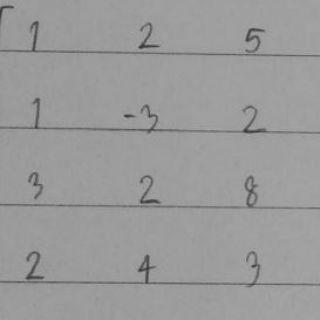 1 2 5
1 -3 2
3 2 8
2 4 3